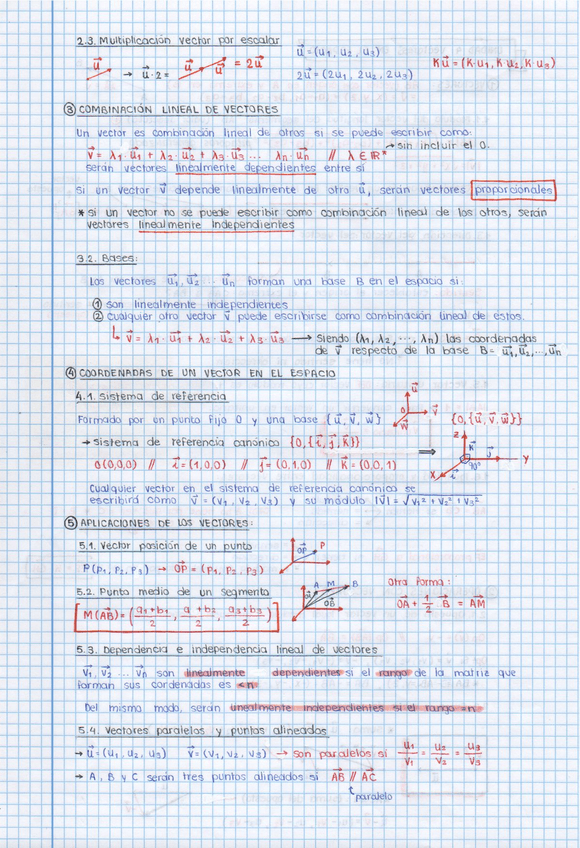 2.3. Multiplicación vector por escalar
u⃗ → u⃗ · 2 = u⃗ u⃗ = 2u⃗
u⃗ = (u₁, u₂, u₃)
2u⃗ = (2u₁, 2u₂, 2u₃)
K u⃗ = (K·u₁, K·u₂, K·u₃)
③ COMBINACIÓN LINEAL DE VECTORES
Un vector es combinación lineal de otros si se puede escribir como:
v⃗ = λ₁·u⃗₁ + λ₂·u⃗₂ + λ₃·u⃗₃ ... λn·u⃗n // λ ∈ ℝ* → sin incluir el 0.
serán vectores linealmente dependientes entre si
Si un vector v⃗ depende linealmente de otro u⃗, serán vectores proporcionales
* si un vector no se puede escribir como combinación lineal de los otros, serán
vectores linealmente independientes
3.2. Bases:
Los vectores u⃗₁, u⃗₂ ... u⃗n forman una base B en el espacio si:
① son linealmente independientes
② cualquier otro vector v⃗ puede escribirse como combinación lineal de estos.
↳ v⃗ = λ₁·u⃗₁ + λ₂·u⃗₂ + λ₃·u⃗₃ → siendo (λ₁, λ₂, ..., λn) las coordenadas
de v⃗ respecto de la base B = u⃗₁, u⃗₂, ..., u⃗n
④ COORDENADAS DE UN VECTOR EN EL ESPACIO
4.1. Sistema de referencia
u⃗
0 v⃗
w⃗
Formado por un punto fijo O y una base {u⃗, v⃗, w⃗}
{0, {u⃗, v⃗, w⃗}}
→ Sistema de referencia canónico {0, {i⃗, j⃗, k⃗}}
⇒
Z
K⃗
j⃗ Y
90°
X i⃗
0(0,0,0) // i⃗ = (1,0,0) // j⃗ = (0,1,0) // K⃗ = (0,0,1)
Cualquier vector en el sistema de referencia canónico se
escribirá como v⃗ = (v₁, v₂, v₃) y su módulo |v⃗| = √v₁² + v₂² + v₃²
⑤ APLICACIONES DE LOS VECTORES:
5.1. Vector posición de un punto
OP⃗ P
P(p₁, p₂, p₃) → OP⃗ = (p₁, p₂, p₃)
5.2. Punto medio de un segmento
A M B
OB⃗
Otra forma:
M(AB⃗) = (a₁+b₁/2, a +b₂/2, a₃+b₃/2)
OA⃗ + 1/2 · B⃗ = AM⃗
5.3. Dependencia e independencia lineal de vectores
v⃗₁, v⃗₂ ... v⃗n son linealmente dependientes si el rango de la matriz que
forman sus cordenadas es <n
Del mismo modo, serán linealmente independientes si el rango =n
5.4. Vectores paralelos y puntos alineados
→ u⃗ = (u₁, u₂, u₃) v⃗ = (v₁, v₂, v₃) → son paralelos si u₁/v₁ = u₂/v₂ = u₃/v₃
→ A, B y C serán tres puntos alineados si AB⃗ // AC⃗
paralelo